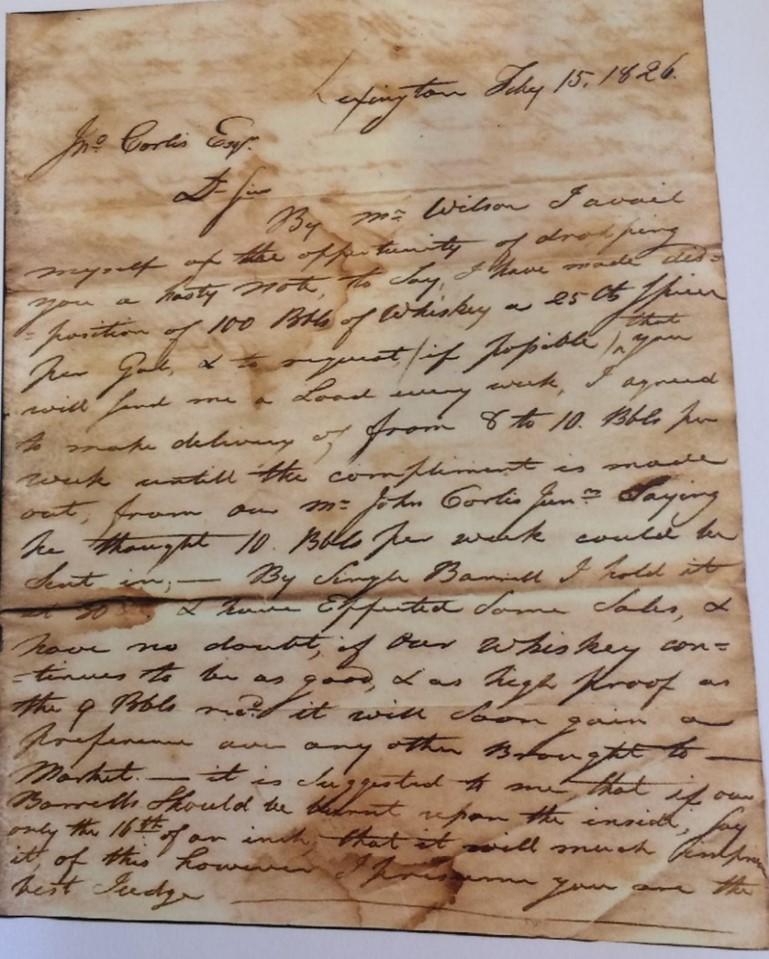 Lexington Feby 15, 1826.
Jno Corlis Esqr.
Dr Sir
By Mr Wilson I avail
myself of the oppertunity of dropping
you a hasty note, to Say, I have made dis=
=position of 100 Bbls of Whiskey a 25 Cts Specie
per Gal, & to request (if possible) that you
will send me a Load every week, I agreed
to make delivery of from 8 to 10. Bbls per
week untill the compliment is made
out, from our Mr John Corlis Junr Saying
he thought 10. Bbls per week could be
Sent in, — By Single Barrell I hold it
at & have Effected Some Sales, &
have no doubt, if Our Whiskey con=
=tinues to be as good, & as high proof as
the 9 Bbls recd it will Soon gain a
preference over any other Brought to —
Market. — it is Suggested to me that if our
Barrells Should be burnt upon the inside, Say
only the 16th of an inch, that it will much improve
it, of this however I presume you are the
best Judge —